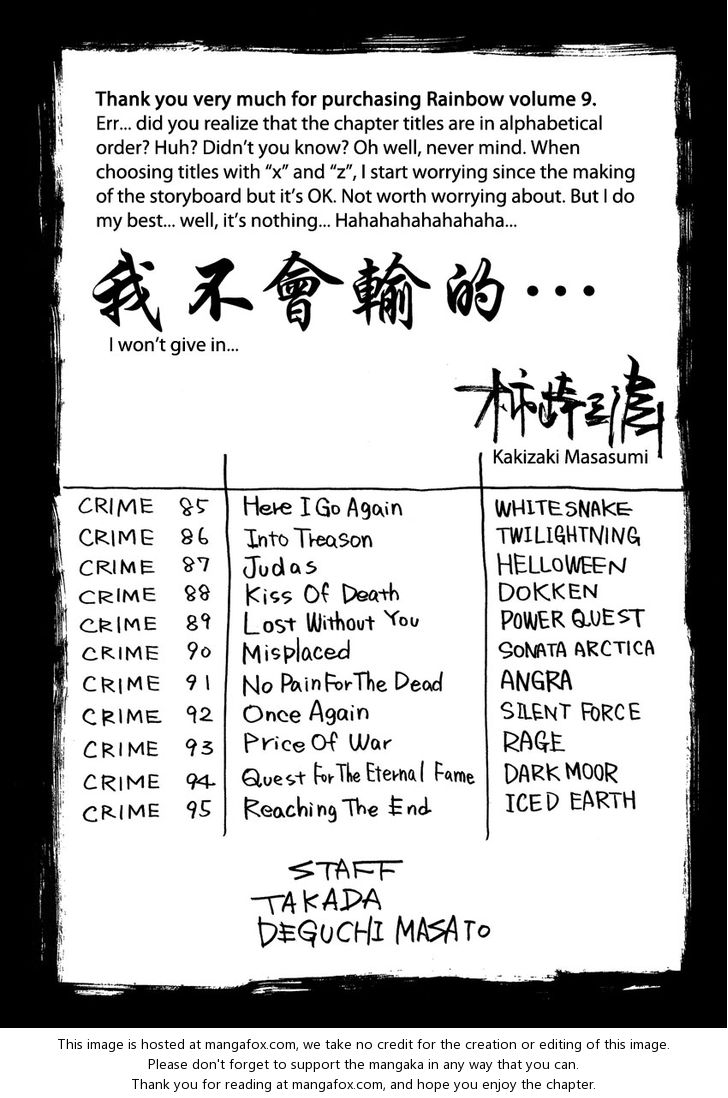 Thank you very much for purchasing Rainbow volume 9.
Err... did you realize that the chapter titles are in alphabetical
order? Huh? Didn't you know? Oh well, never mind. When
choosing titles with “x” and “z”, I start worrying since the making
of the storyboard but it's OK. Not worth worrying about. But I do
my best... well, it's nothing... Hahahahahahahaha...
我不會輸的···
I won't give in...
Kakizaki Masasumi
CRIME 85 Here I Go Again WHITESNAKE
CRIME 86 Into Treason TWILIGHTNING
CRIME 87 Judas HELLOWEEN
CRIME 88 Kiss Of Death DOKKEN
CRIME 89 Lost Without You POWER QUEST
CRIME 90 Misplaced SONATA ARCTICA
CRIME 91 No Pain For The Dead ANGRA
CRIME 92 Once Again SILENT FORCE
CRIME 93 Price Of War RAGE
CRIME 94 Quest For The Eternal Fame DARK MOOR
CRIME 95 Reaching The End ICED EARTH
STAFF
TAKADA
DEGUCHI MASATO
This image is hosted at mangafox.com, we take no credit for the creation or editing of this image.
Please don't forget to support the mangaka in any way that you can.
Thank you for reading at mangafox.com, and hope you enjoy the chapter.